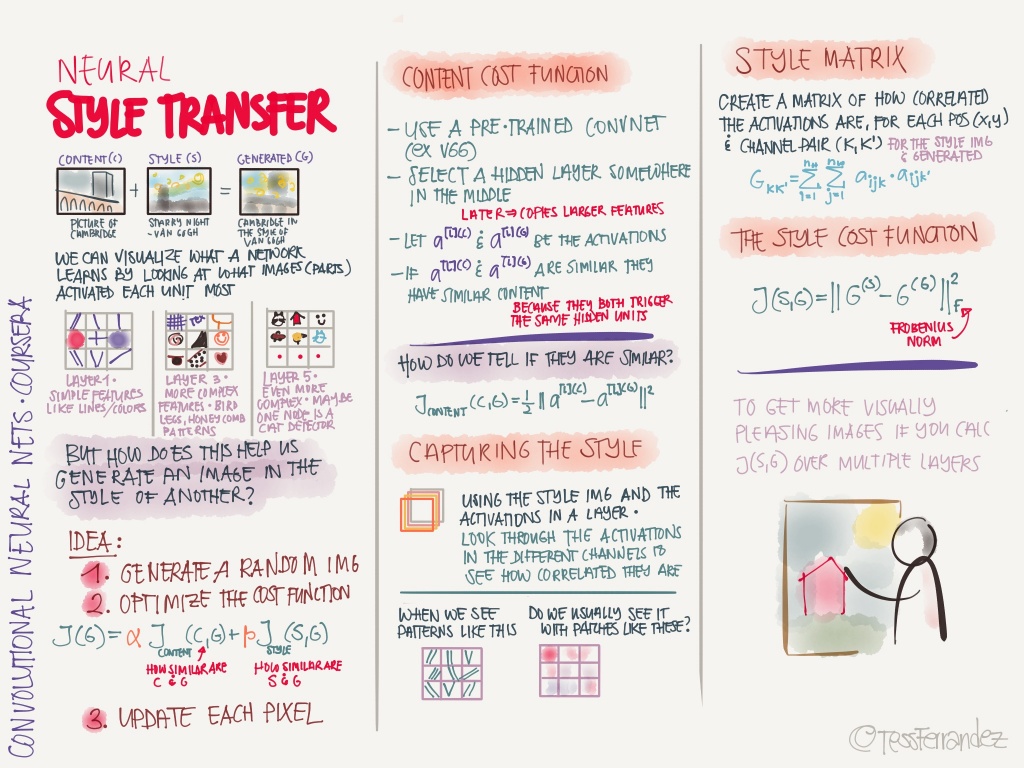 CONVOLUTIONAL NEURAL NETS · COURSERA
NEURAL
STYLE TRANSFER
CONTENT(C)
STYLE (S)
GENERATED (G)
+
=
PICTURE OF
CAMBRIDGE
STARRY NIGHT
- VAN GOGH
CAMBRIDGE IN
THE STYLE OF
VAN GOGH
WE CAN VISUALIZE WHAT A NETWORK
LEARNS BY LOOKING AT WHAT IMAGES (PARTS)
ACTIVATED EACH UNIT MOST
LAYER 1 ·
SIMPLE FEATURES
LIKE LINES/COLORS
LAYER 3 ·
MORE COMPLEX
FEATURES · BIRD
LEGS, HONEYCOMB
PATTERNS
LAYER 5 ·
EVEN MORE
COMPLEX · MAYBE
ONE NODE IS A
CAT DETECTOR
BUT HOW DOES THIS HELP US
GENERATE AN IMAGE IN THE
STYLE OF ANOTHER?
IDEA:
1. GENERATE A RANDOM IMG
2. OPTIMIZE THE COST FUNCTION
J(G) = α J CONTENT (C,G) + β J STYLE (S,G)
HOW SIMILAR ARE
C & G
HOW SIMILAR ARE
S & G
3. UPDATE EACH PIXEL
CONTENT COST FUNCTION
- USE A PRE-TRAINED CONVNET
(EX VGG)
- SELECT A HIDDEN LAYER SOMEWHERE
IN THE MIDDLE
LATER ⇒ COPIES LARGER FEATURES
- LET a^[l](C) & a^[l](G) BE THE ACTIVATIONS
- IF a^[l](C) & a^[l](G) ARE SIMILAR THEY
HAVE SIMILAR CONTENT
BECAUSE THEY BOTH TRIGGER
THE SAME HIDDEN UNITS
HOW DO WE TELL IF THEY ARE SIMILAR?
J CONTENT (C,G) = 1/2 || a^[l](C) - a^[l](G) ||²
CAPTURING THE STYLE
USING THE STYLE IMG AND THE
ACTIVATIONS IN A LAYER ·
LOOK THROUGH THE ACTIVATIONS
IN THE DIFFERENT CHANNELS TO
SEE HOW CORRELATED THEY ARE
WHEN WE SEE
PATTERNS LIKE THIS
DO WE USUALLY SEE IT
WITH PATCHES LIKE THESE?
STYLE MATRIX
CREATE A MATRIX OF HOW CORRELATED
THE ACTIVATIONS ARE, FOR EACH POS (X,Y)
& CHANNEL PAIR (K,K') FOR THE STYLE IMG
& GENERATED
G_KK' = Σ_{i=1}^{n_H} Σ_{j=1}^{n_W} a_ijk · a_ijk'
THE STYLE COST FUNCTION
J(S,G) = || G^(S) - G^(G) ||²_F
FROBENIUS
NORM
TO GET MORE VISUALLY
PLEASING IMAGES IF YOU CALC
J(S,G) OVER MULTIPLE LAYERS
©TessFerrandez